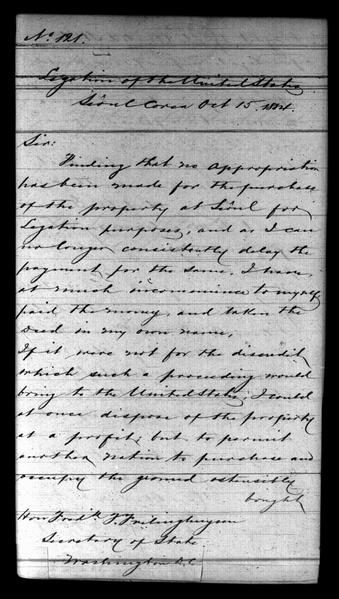 No. 121.
Legation of the United States
Séoul Corea Oct 15. 1884.
Sir:
Finding that no appropriation
has been made for the purchase
of the property at Séoul for
Legation purposes, and as I can
no longer consistently delay the
payment for the same, I have,
at much inconvenience to myself
paid the money, and taken the
deed in my own name.
If it were not for the discredit
which such a proceeding would
bring to the United States, I could
at once dispose of the property
at a profit; but to permit
another nation to purchase and
occupy the ground ostensibly
bought
Hon Fredk. T. Frelinghuysen
Secretary of State
Washington D.C.